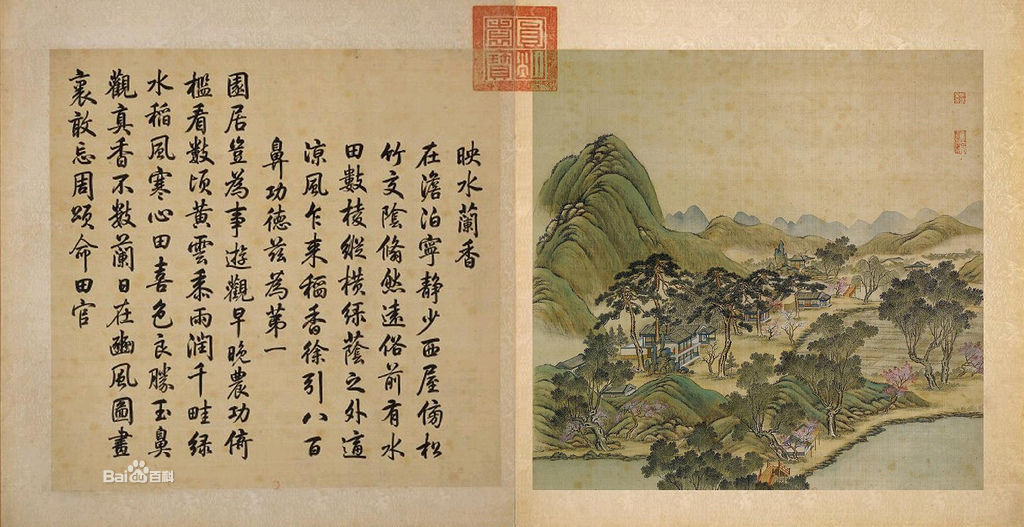 映水蘭香
在澹泊寧靜少西屋傍松
竹交陰翛然遠俗前有水
田數棱縱橫緑蔭之外適
涼風乍来稻香徐引八百
鼻功德兹為第一
園居豈為事遊觀早晚農功倚
檻看數頃黃雲黍雨潤千畦緑
水稻風寒心田喜色良勝玉鼻
觀真香不數蘭日在豳風圖畫
裏敢忘周頌命田官
Bai du 百科